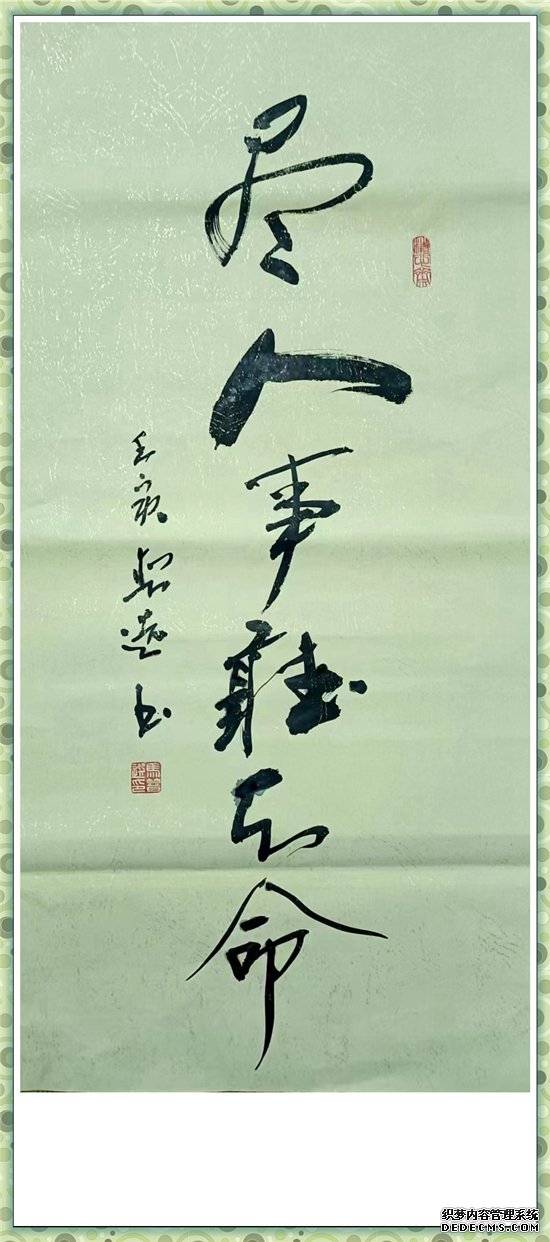 尽人事聽天命
壬寅
书
织梦内容管理系统
DEDECMS.COM